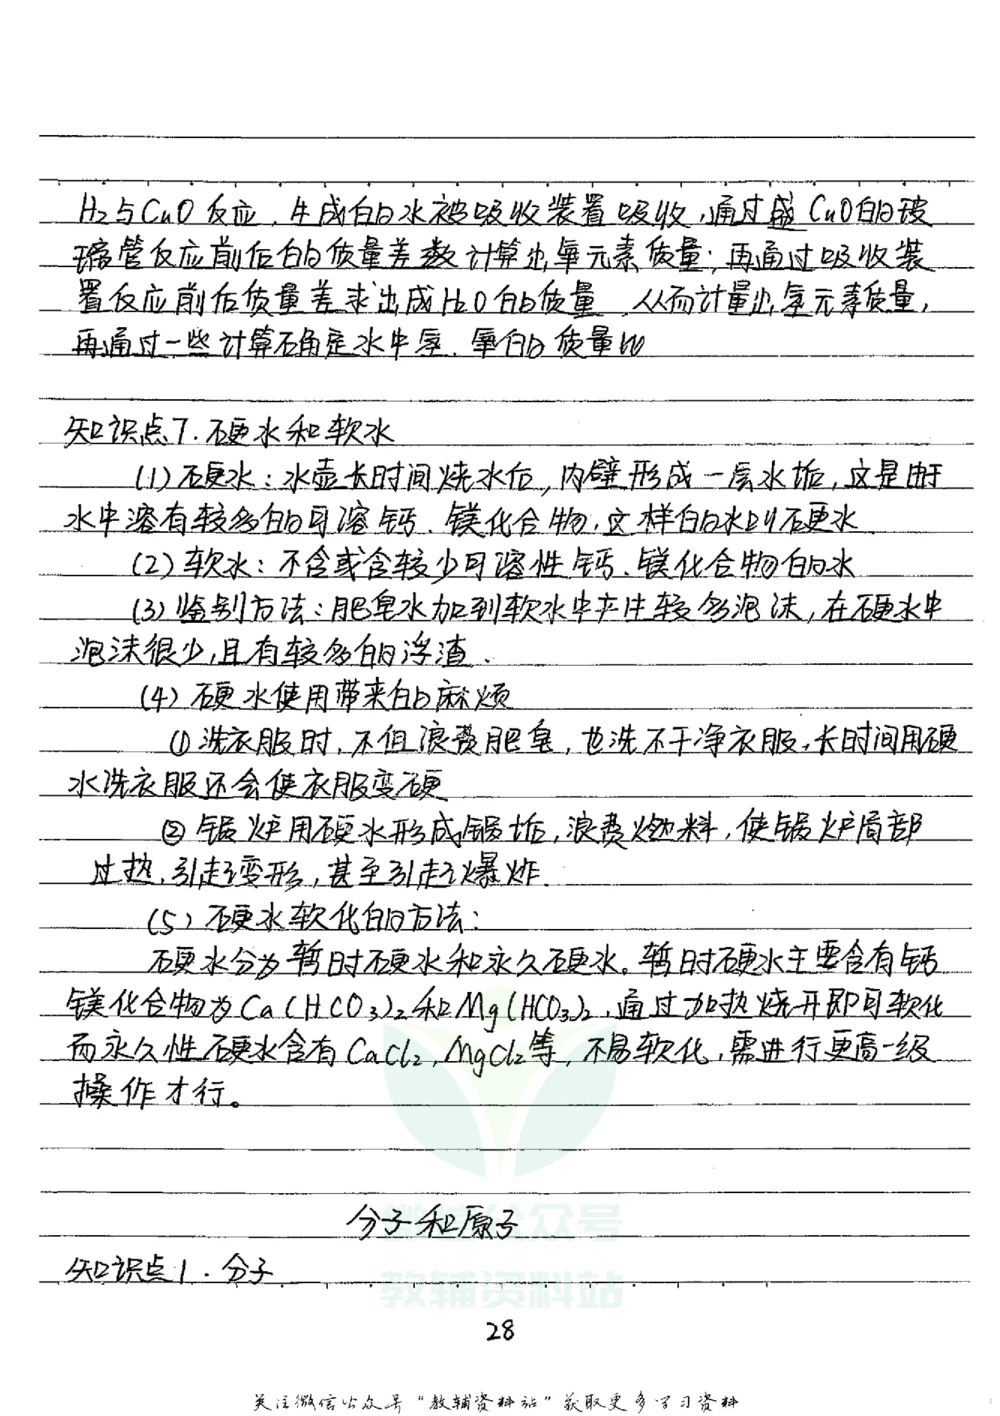 H₂与CuO反应,生成的水被吸收装置吸收,通过盛CuO的玻
璃管反应前后的质量差数计算出氧元素质量;再通过吸收装
置反应前后质量差求出成H₂O的质量,从而计量出氢元素质量,
再通过一些计算确定水中氢、氧的质量比
知识点7.硬水和软水
(1)硬水:水壶长时间烧水后,内壁形成一层水垢,这是由于
水中溶有较多的可溶钙、镁化合物,这样的水叫硬水
(2)软水:不含或含较少可溶性钙、镁化合物的水
(3)鉴别方法:肥皂水加到软水中产生较多泡沫,在硬水中
泡沫很少,且有较多的浮渣.
(4)硬水使用带来的麻烦
①洗衣服时,不但浪费肥皂,也洗不干净衣服,长时间用硬
水洗衣服还会使衣服变硬
②锅炉用硬水形成锅垢,浪费燃料,使锅炉局部
过热,引起变形,甚至引起爆炸.
(5)硬水软化的方法:
硬水分为暂时硬水和永久硬水。暂时硬水主要含有钙
镁化合物为Ca(HCO₃)₂和Mg(HCO₃)₂,通过加热烧开即可软化
而永久性硬水含有CaCl₂,MgCl₂等,不易软化,需进行更高一级
操作才行。
分子和原子
知识点1.分子
教辅资料站
28
关注微信公众号“教辅资料站”获取更多学习资料